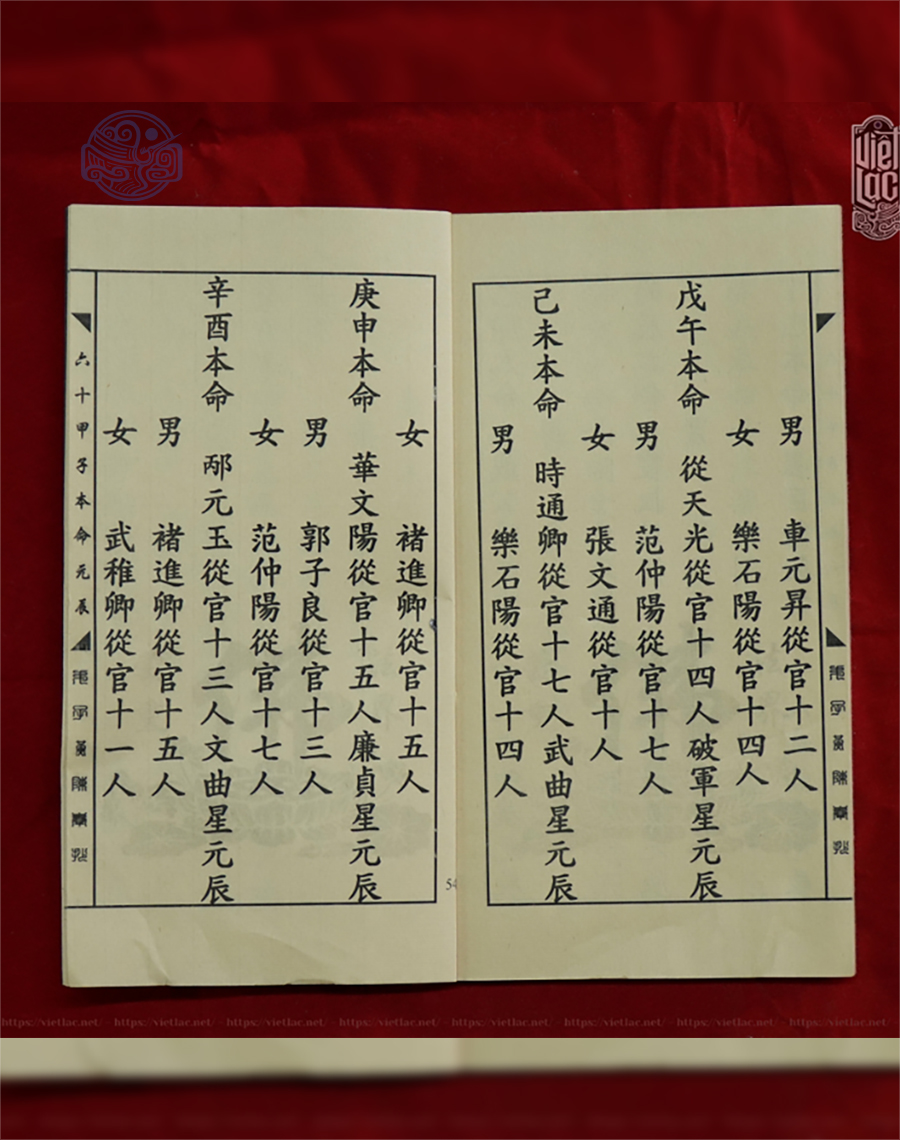 Việt Lạc
男 車元昇從官十二人
女 樂石陽從官十四人
戊午本命 從天光從官十四人破軍星元辰
男 范仲陽從官十七人
女 張文通從官十人
己未本命 時通卿從官十七人武曲星元辰
男 樂石陽從官十四人
女 褚進卿從官十五人
庚申本命 華文陽從官十五人廉貞星元辰
男 郭子良從官十三人
女 范仲陽從官十七人
辛酉本命 邴元玉從官十三人文曲星元辰
男 褚進卿從官十五人
女 武稚卿從官十一人
六十甲子本命元辰
54
https://vietlac.net/ - https://vietlac.net/ - https://vietlac.net/ - https://vietlac.net/ - https://vietlac.net/ - https://vietlac.net/ - https://vietlac.net/ - https://vietlac.net/